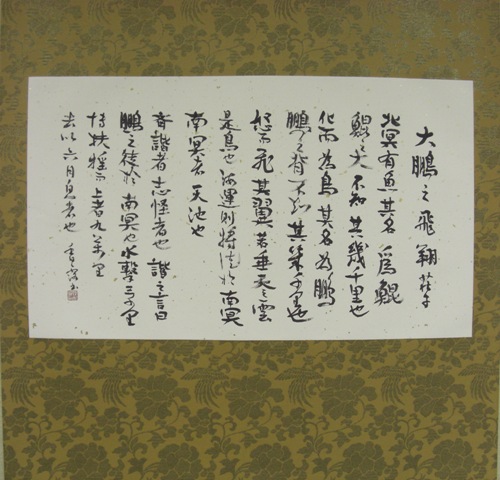 大鵬之飛翔 莊子
北冥有魚其名為鯤
鯤之大不知其幾千里也
化而為鳥其名為鵬
鵬之背不知其幾千里也
怒而飛其翼若垂天之雲
是鳥也海運則將徙於南冥
南冥者天池也
齊諧者志怪者也諧之言曰
鵬之徙於南冥也水擊三千里
摶扶搖而上者九萬里
去以六月息者也